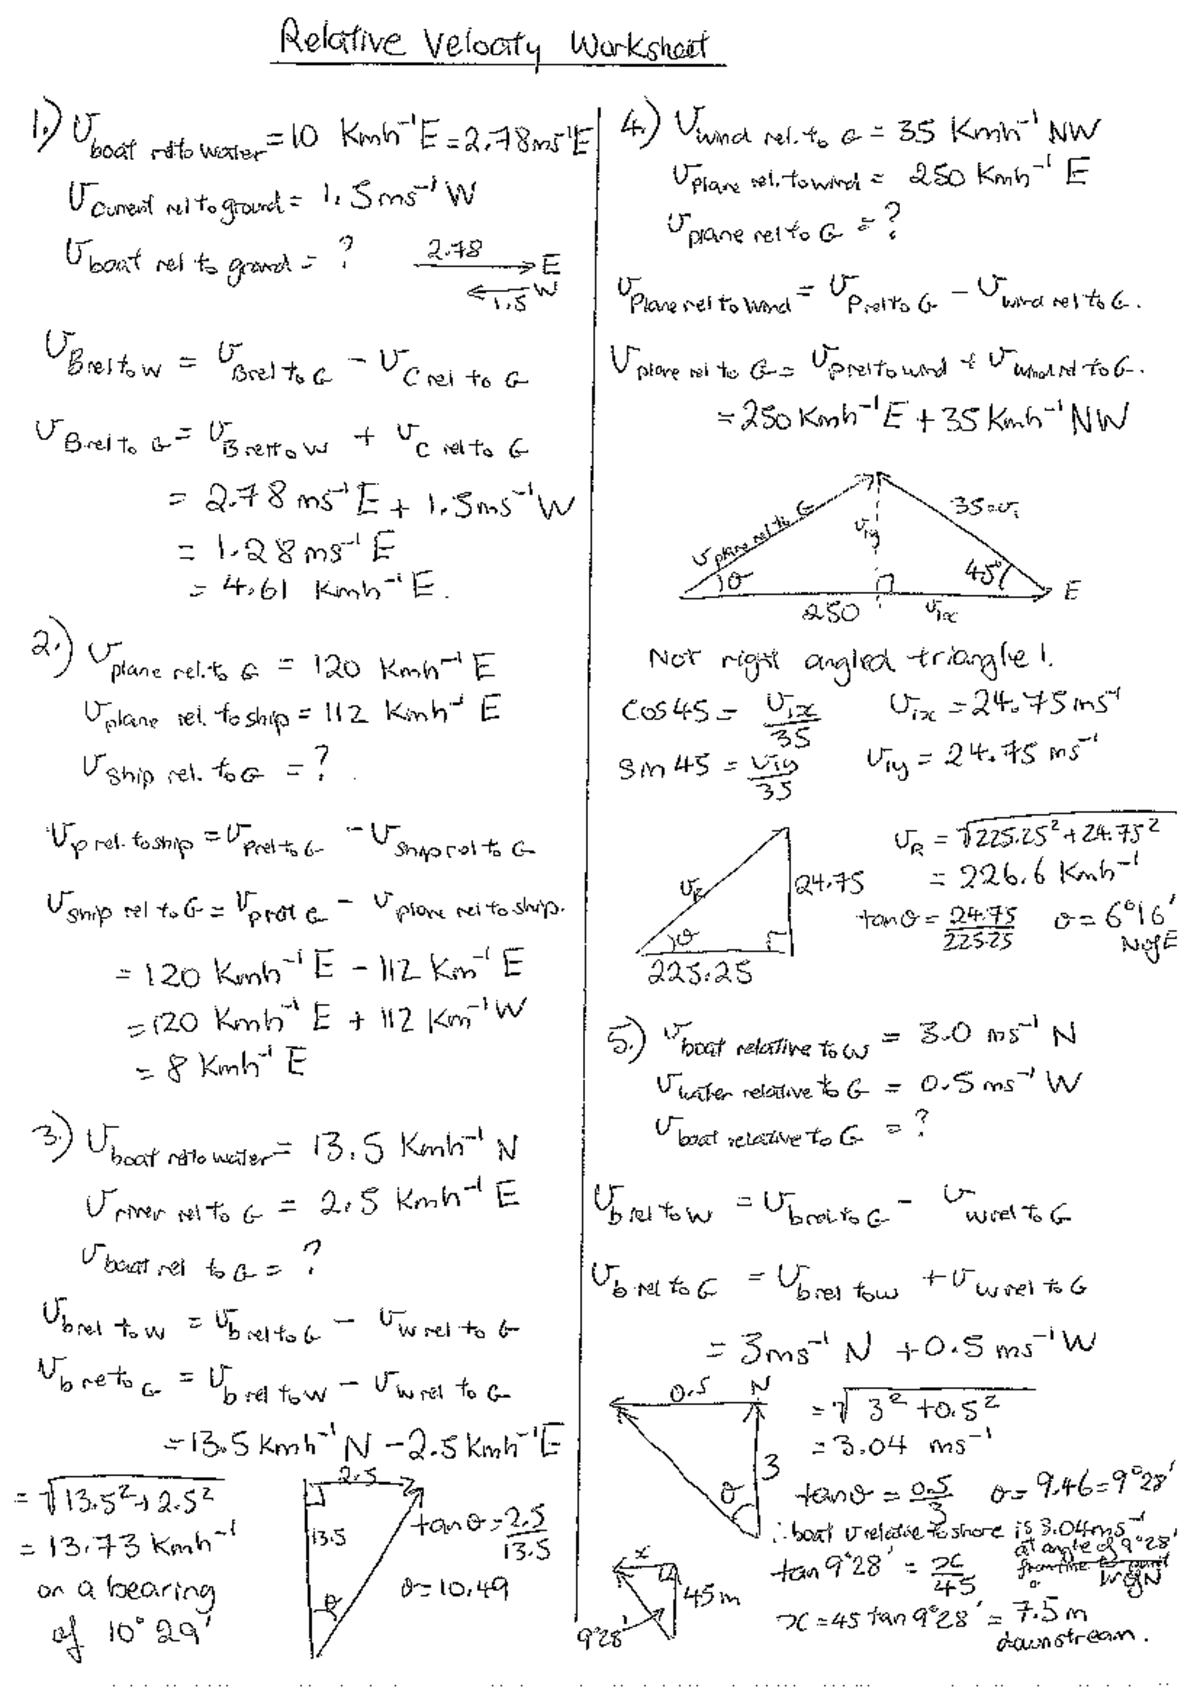 Relative Velocity Worksheet
1.) V boat rel to water = 10 Kmh⁻¹ E = 2.78 ms⁻¹ E
V current rel to ground = 1.5 ms⁻¹ W
V boat rel to ground = ?
2.78 E
1.5 W
V B rel to W = V B rel to G - V C rel to G
V B rel to G = V B rel to W + V C rel to G
= 2.78 ms⁻¹ E + 1.5 ms⁻¹ W
= 1.28 ms⁻¹ E
= 4.61 Kmh⁻¹ E.
2.) V plane rel. to G = 120 Kmh⁻¹ E
V plane rel. to ship = 112 Kmh⁻¹ E
V ship rel. to G = ?
V p rel. to ship = V p rel to G - V ship rel to G
V ship rel to G = V p rel G - V plane rel to ship.
= 120 Kmh⁻¹ E - 112 Km⁻¹ E
= 120 Kmh⁻¹ E + 112 Km⁻¹ W
= 8 Kmh⁻¹ E
3.) V boat rel to water = 13.5 Kmh⁻¹ N
V river rel to G = 2.5 Kmh⁻¹ E
V boat rel to G = ?
V b rel to W = V b rel to G - V W rel to G
V b re to G = V b rel to W - V W rel to G
= 13.5 Kmh⁻¹ N - 2.5 Kmh⁻¹ E
= √13.5² + 2.5²
= 13.73 Kmh⁻¹
on a bearing
of 10° 29'
2.5
13.5
θ
tan θ = 2.5/13.5
θ = 10.49
4.) V wind rel. to G = 35 Kmh⁻¹ NW
V plane rel. to wind = 250 Kmh⁻¹ E
V plane rel to G = ?
V Plane rel to wind = V P rel to G - V wind rel to G.
V plane rel to G = V p rel to wind + V wind rel to G.
= 250 Kmh⁻¹ E + 35 Kmh⁻¹ NW
V plane rel to G
V₁y
35 = V₁
θ
45°
E
250
V₁x
Not right angled triangle!.
cos 45 = V₁x/35 V₁x = 24.75 ms⁻¹
sin 45 = V₁y/35 V₁y = 24.75 ms⁻¹
V R
24.75
θ
225.25
V R = √225.25² + 24.75²
= 226.6 Kmh⁻¹
tan θ = 24.75/225.25 θ = 6°16'
N of E
5.) V boat relative to W = 3.0 ms⁻¹ N
V water relative to G = 0.5 ms⁻¹ W
V boat relative to G = ?
V b rel to W = V b rel to G - V W rel to G
V b rel to G = V b rel to W + V W rel to G
= 3 ms⁻¹ N + 0.5 ms⁻¹ W
0.5 N
3
θ
= √3² + 0.5²
= 3.04 ms⁻¹
tan θ = 0.5/3 θ = 9.46 = 9°28'
∴ boat V relative to shore is 3.04 ms⁻¹
at angle of 9°28'
W of N
x
45 m
9°28'
tan 9°28' = x/45
x = 45 tan 9°28' = 7.5 m
downstream.